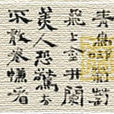 青鳥
飛上金井欄
美人恐驚去
不敢卷簾看